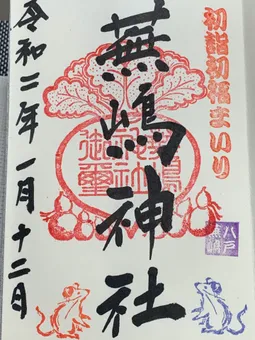 初詣初福まいり
蕪嶋神社
八戸
蕪嶋
令和二年一月十二日